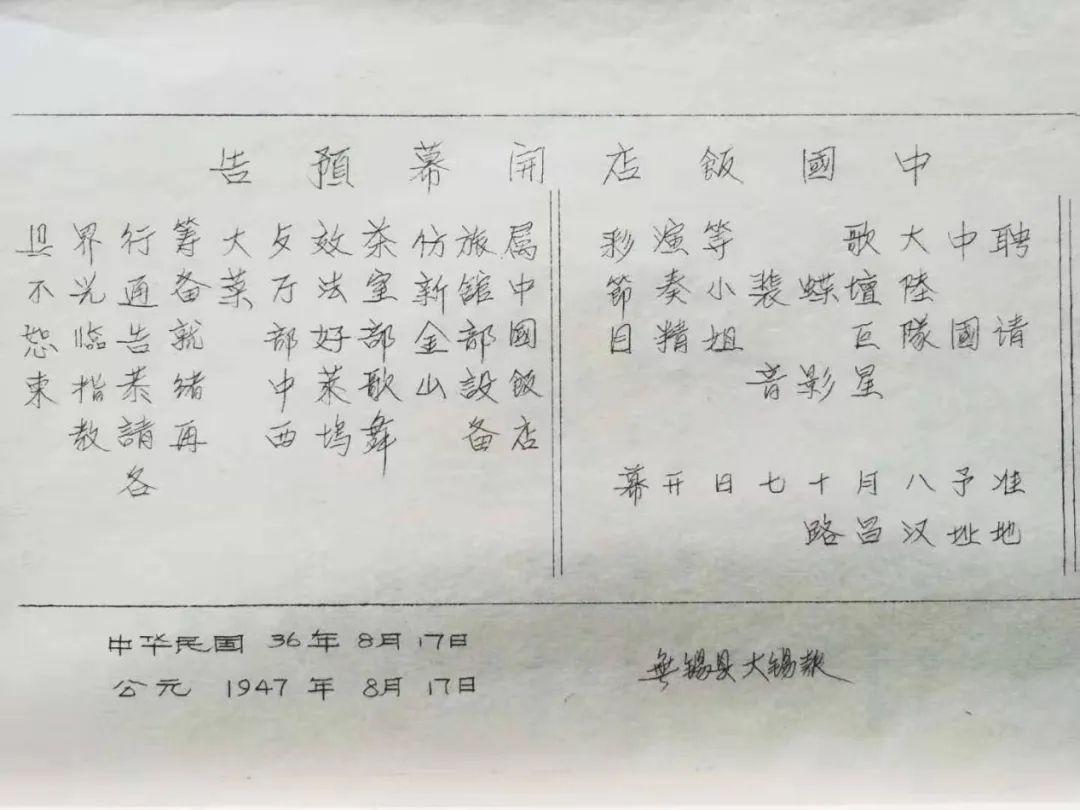 中國飯店開幕預告
聘请
中國
大陸隊
歌壇巨星
蝶影
裴音
等小姐
演奏精
彩節目
准予八月十七日开幕
地址汉昌路
属中國飯店
旅館部設备
仿新金山
茶室部歌舞
效法好莱塢
歺厅部中西
大菜
筹备就绪再
行通告恭請各
界光臨指教
具不恕柬
中华民国 36年 8月 17日
公元 1947 年 8月 17日
無锡县大锡报